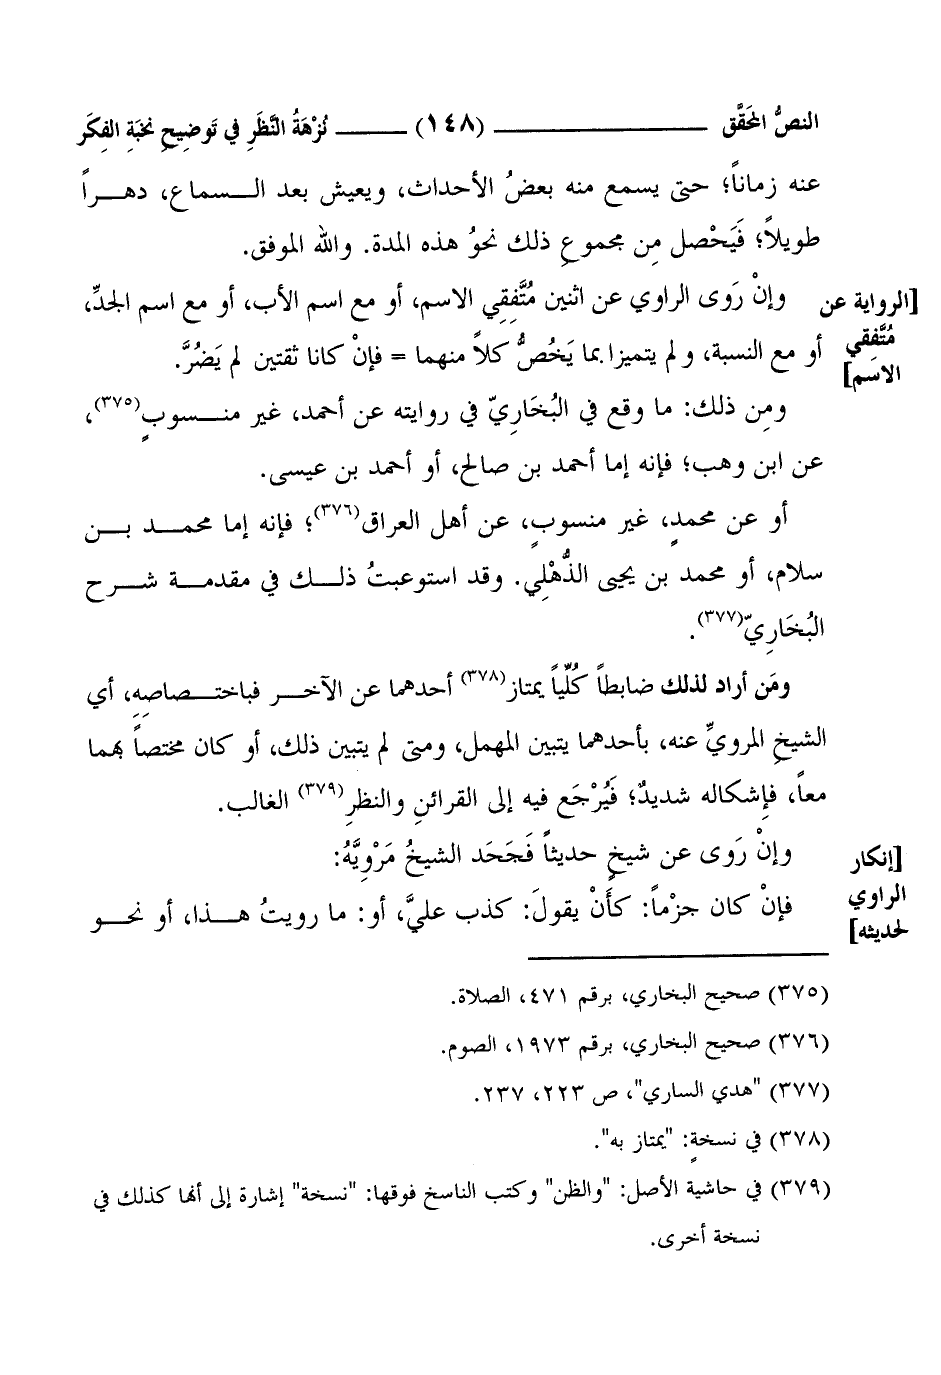 النصُّ المحَقَّق ـــــــــ (١٤٨) ـــــــ نُزْهَةُ النَّظَرِ في تَوضِيحِ نخبَةِ الفِكَر
عنه زماناً؛ حتى يسمع منه بعضُ الأحداث، ويعيش بعد الـسماع، دهـراً
طويلاً؛ فَيَحْصل مِن مجموعِ ذلك نحوُ هذه المدة. والله الموفق.
[الرواية عن وإنْ رَوى الراوي عن اثنين مُتَّفِقِي الاسم، أو مع اسم الأب، أو مع اسم الجدِّ،
مُتَّفِقِي أو مع النسبة، ولم يتميزا بما يَخُصُّ كلاً منهما = فإنْ كانا ثقتين لم يَضُرَّ.
الاسم]
ومِن ذلك: ما وقع في البُخَارِيّ في روايته عن أحمد، غير منـسوبٍ(٣٧٥)،
عن ابن وهب؛ فإنه إما أحمد بن صالح، أو أحمد بن عيسى.
أو عن محمدٍ، غير منسوبٍ، عن أهل العراق(٣٧٦)؛ فإنه إما محمـد بـن
سلام، أو محمد بن يحيى الذُّهْلِي. وقد استوعبتُ ذلـك في مقدمـة شـرح
البُخَارِيّ(٣٧٧).
ومَن أراد لذلك ضابطاً كُلِّياً يمتاز(٣٧٨) أحدهما عن الآخـر فباختـصاصِهِ، أي
الشيخِ المرويِّ عنه، بأحدهما يتبين المهمل، ومتى لم يتبين ذلك، أو كان مختصاً بهما
معاً، فإشكاله شديدٌ؛ فَيُرْجَع فيه إلى القرائنِ والنظرِ(٣٧٩) الغالب.
[إنكار وإنْ رَوى عن شيخٍ حديثاً فَجَحَد الشيخُ مَرْوِيَّهُ:
الراوي فإنْ كان جزْماً: كأنْ يقولَ: كذب عليَّ، أو: ما رويتُ هـذا، أو نحـو
لحديثه]
(٣٧٥) صحيح البخاري، برقم ٤٧١، الصلاة.
(٣٧٦) صحيح البخاري، برقم ١٩٧٣، الصوم.
(٣٧٧) "هدي الساري"، ص ٢٢٣، ٢٣٧.
(٣٧٨) في نسخةٍ: "يمتاز به".
(٣٧٩) في حاشية الأصل: "والظن" وكتب الناسخ فوقها: "نسخة" إشارة إلى أنها كذلك في
نسخة أخرى.